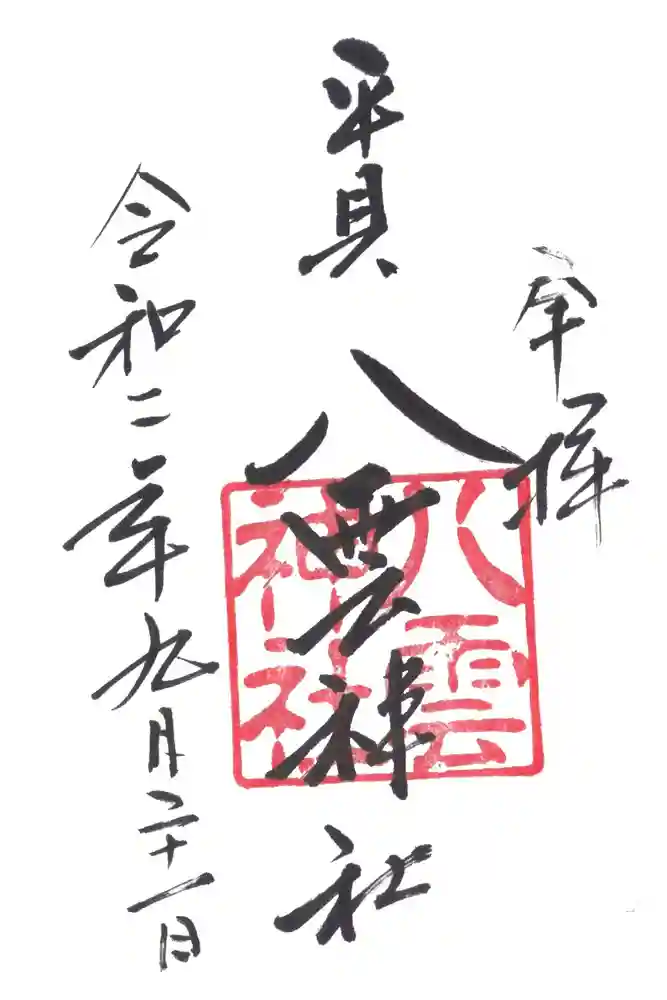 奉拝
平貝
八雲神社
八雲
神社
令和二年九月二十一日